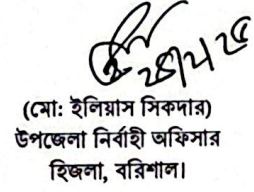 (মো: ইলিয়াস সিকদার)
উপজেলা নির্বাহী অফিসার
হিজলা, বরিশাল।